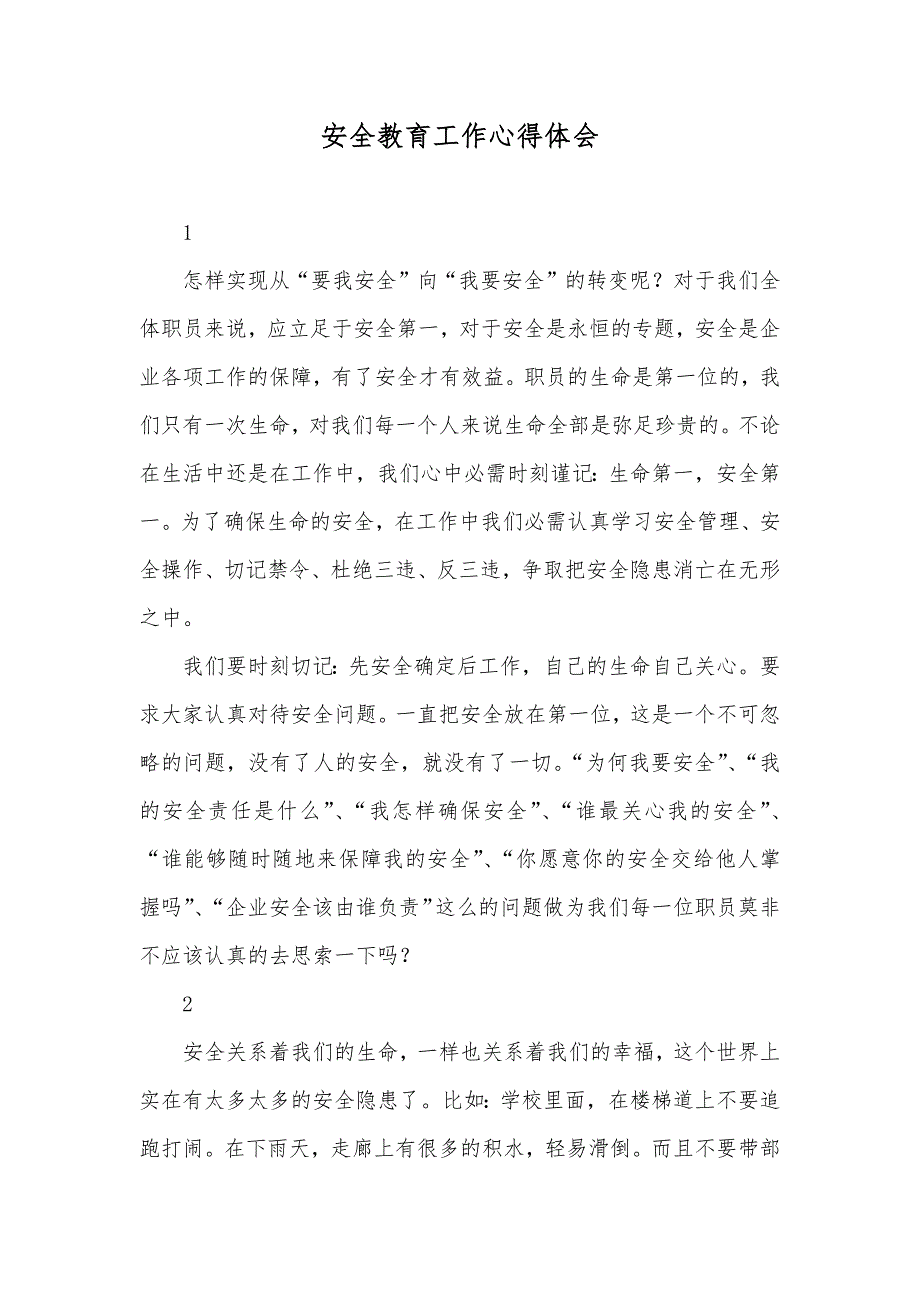 安全教育工作心得体会
1
怎样实现从“要我安全”向“我要安全”的转变呢？对于我们全
体职员来说，应立足于安全第一，对于安全是永恒的专题，安全是企
业各项工作的保障，有了安全才有效益。职员的生命是第一位的，我
们只有一次生命，对我们每一个人来说生命全部是弥足珍贵的。不论
在生活中还是在工作中，我们心中必需时刻谨记：生命第一，安全第
一。为了确保生命的安全，在工作中我们必需认真学习安全管理、安
全操作、切记禁令、杜绝三违、反三违，争取把安全隐患消亡在无形
之中。
我们要时刻切记：先安全确定后工作，自己的生命自己关心。要
求大家认真对待安全问题。一直把安全放在第一位，这是一个不可忽
略的问题，没有了人的安全，就没有了一切。“为何我要安全”、“我
的安全责任是什么”、“我怎样确保安全”、“谁最关心我的安全”、
“谁能够随时随地来保障我的安全”、“你愿意你的安全交给他人掌
握吗”、“企业安全该由谁负责”这么的问题做为我们每一位职员莫非
不应该认真的去思索一下吗？
2
安全关系着我们的生命，一样也关系着我们的幸福，这个世界上
实在有太多太多的安全隐患了。比如：学校里面，在楼梯道上不要追
跑打闹。在下雨天，走廊上有很多的积水，轻易滑倒。而且不要带部